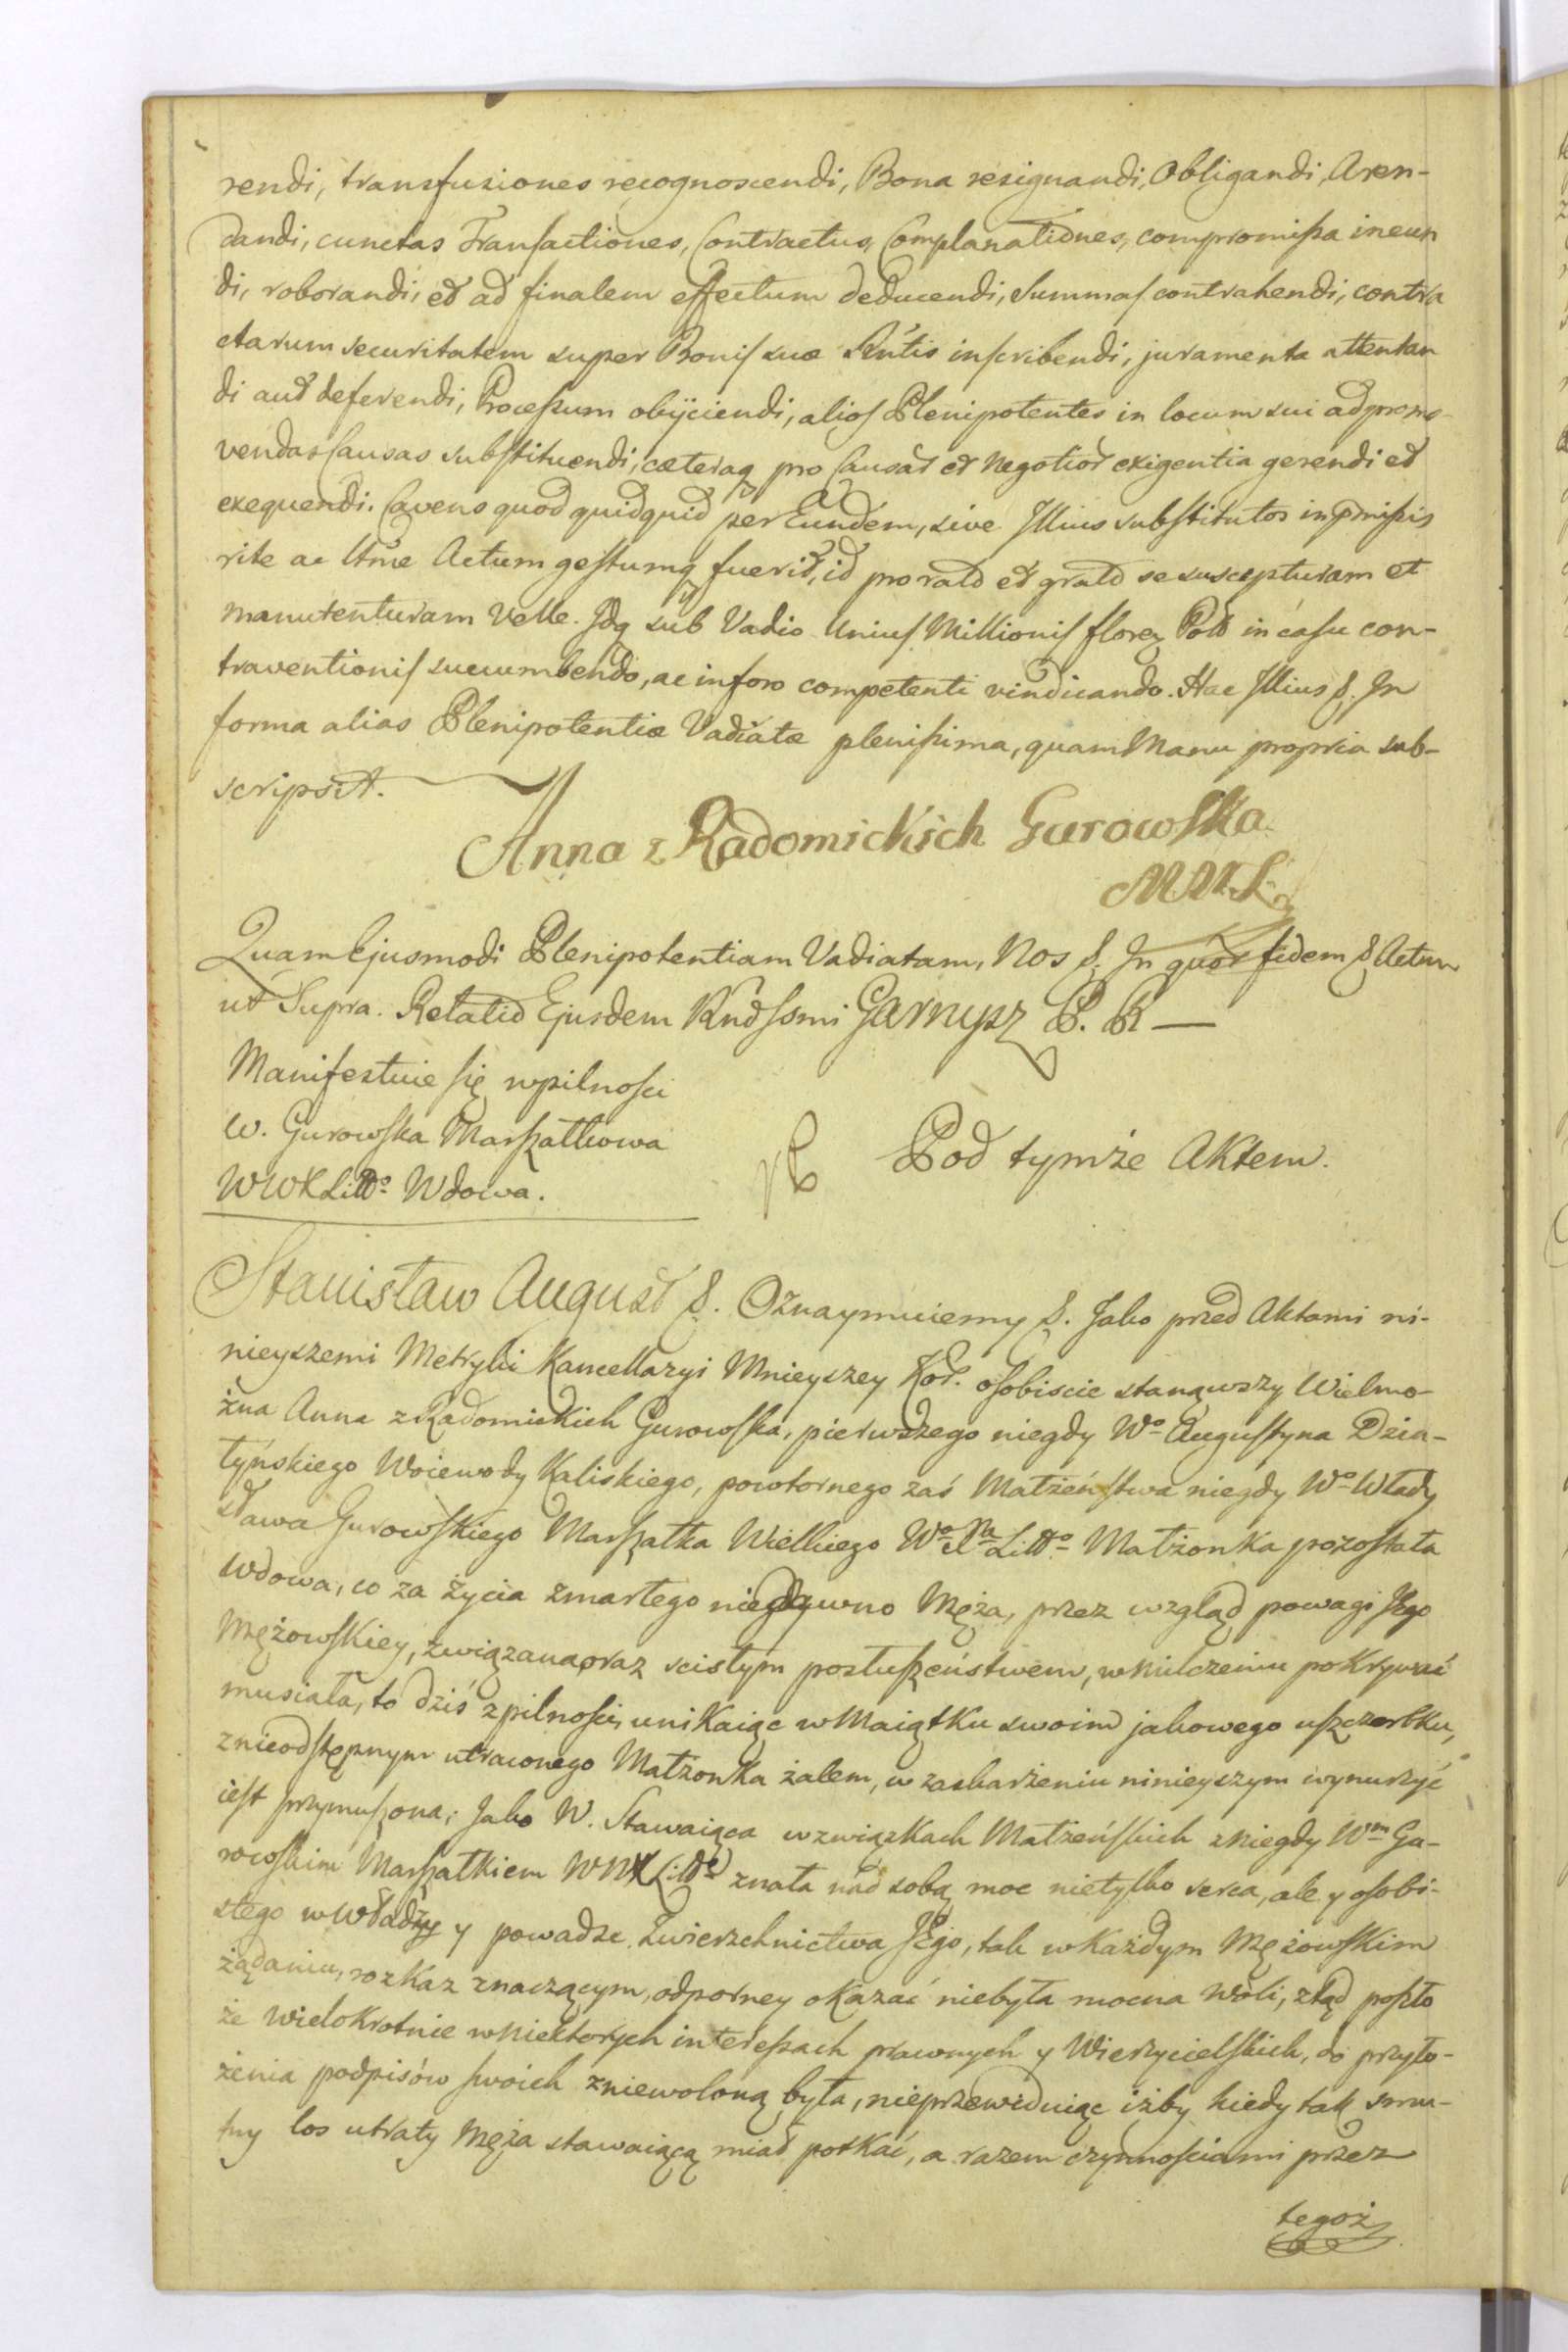 rendi, transfusiones recognoscendi, Bona resignandi, Obligandi, Aren-
dandi, cunctas Transactiones, Contractus, Complanationes, compromissa ineun
di, roborandi, et ad finalem effectum deducendi, Summas contrahendi, contra
ctarum securitatem super Bonis suae inscribendi, juramenta attentan
di aut deferendi, Processum obijciendi, alios Plenipotentes in locum sui ad promo-
vendas Causas substituendi, caeteraq pro Causar et Negotior exigentia gerendi et
exequendi. Cavens quod quidquid per Eundem, sive Illius substitutos in pmissis
rite ac ltme Actum gestumq fuerit, id pro rato et grato se suscepturam et
manutenturam Velle. Idq sub Vadio Unius Millionis floren Pol in casu con-
traventionis succumbendo, ac in foro competenti vindicando. Hac Illius &. In
forma alias Plenipotentiae Vadiatae plenissima, quam Manu propria sub-
scripsit.
Anna z Radomickich Gurowska
M.M.L.
Quam Ejusmodi Plenipotentiam Vadiatam, Nos &. In quor fidem & Actum
ut Supra. Relatio Ejusdem Rndssmi Garnysz P. R —
Manifestuie się w pilnosci
W. Gurowska Marszałkowa
WWXLitto Wdowa.
Pod tymże Aktem.
Stanisław August &. Oznaymuiemy &. Jako przed Aktami ni-
nieyszemi Metryki Kancellaryi Mnieyszey Kor. osobiscie stanąwszy Wielmo-
żna Anna z Radomickich Gurowska, pierwszego niegdy Wo Augustyna Dzia-
łyńskiego Woiewody Kaliskiego, powtornego zaś Małżeństwa niegdy Wo Włady
sława Gurowskiego Marszałka Wielkiego Wo Xa Litto Małżonka pozostała
Wdowa, co za życia zmarłego niegdywno Męża, przez wzgląd powagi JEgo
Mężowskiey, związana oraz scisłym posłuszeństwem, w milczeniu pokrywać
musiała, to dziś z pilnosci, unikaiąc w Maiątku swoim jakowego uszczerbku,
z nieodstępnym utraconego Małżonka żalem, w zaskarżeniu ninieyszym wynurzyć
iest przymuszona; Jako W. Stawaiąca w związkach Małżeńskich z niegdy Wm Gu-
rowskim Marszałkiem WWX Litto znała nad sobą moc nietylko serca, ale y osobi-
stego w władzy y powadze Zwierzchnictwa JEgo, tak w każdym Mężowskim
żądaniu, rozkaz znaczącym, odporney okazać niebyła mocna woli, ztąd poszło
że wielokrotnie w niektorych interessach prawnych y Wierzycielskich, do przyło-
żenia podpisów swoich zniewoloną była, nieprzewiduiąc iżby kiedy tak smu-
tny los utraty Męża stawaiącą miał potkać, a razem czynnościami przez
tegoż